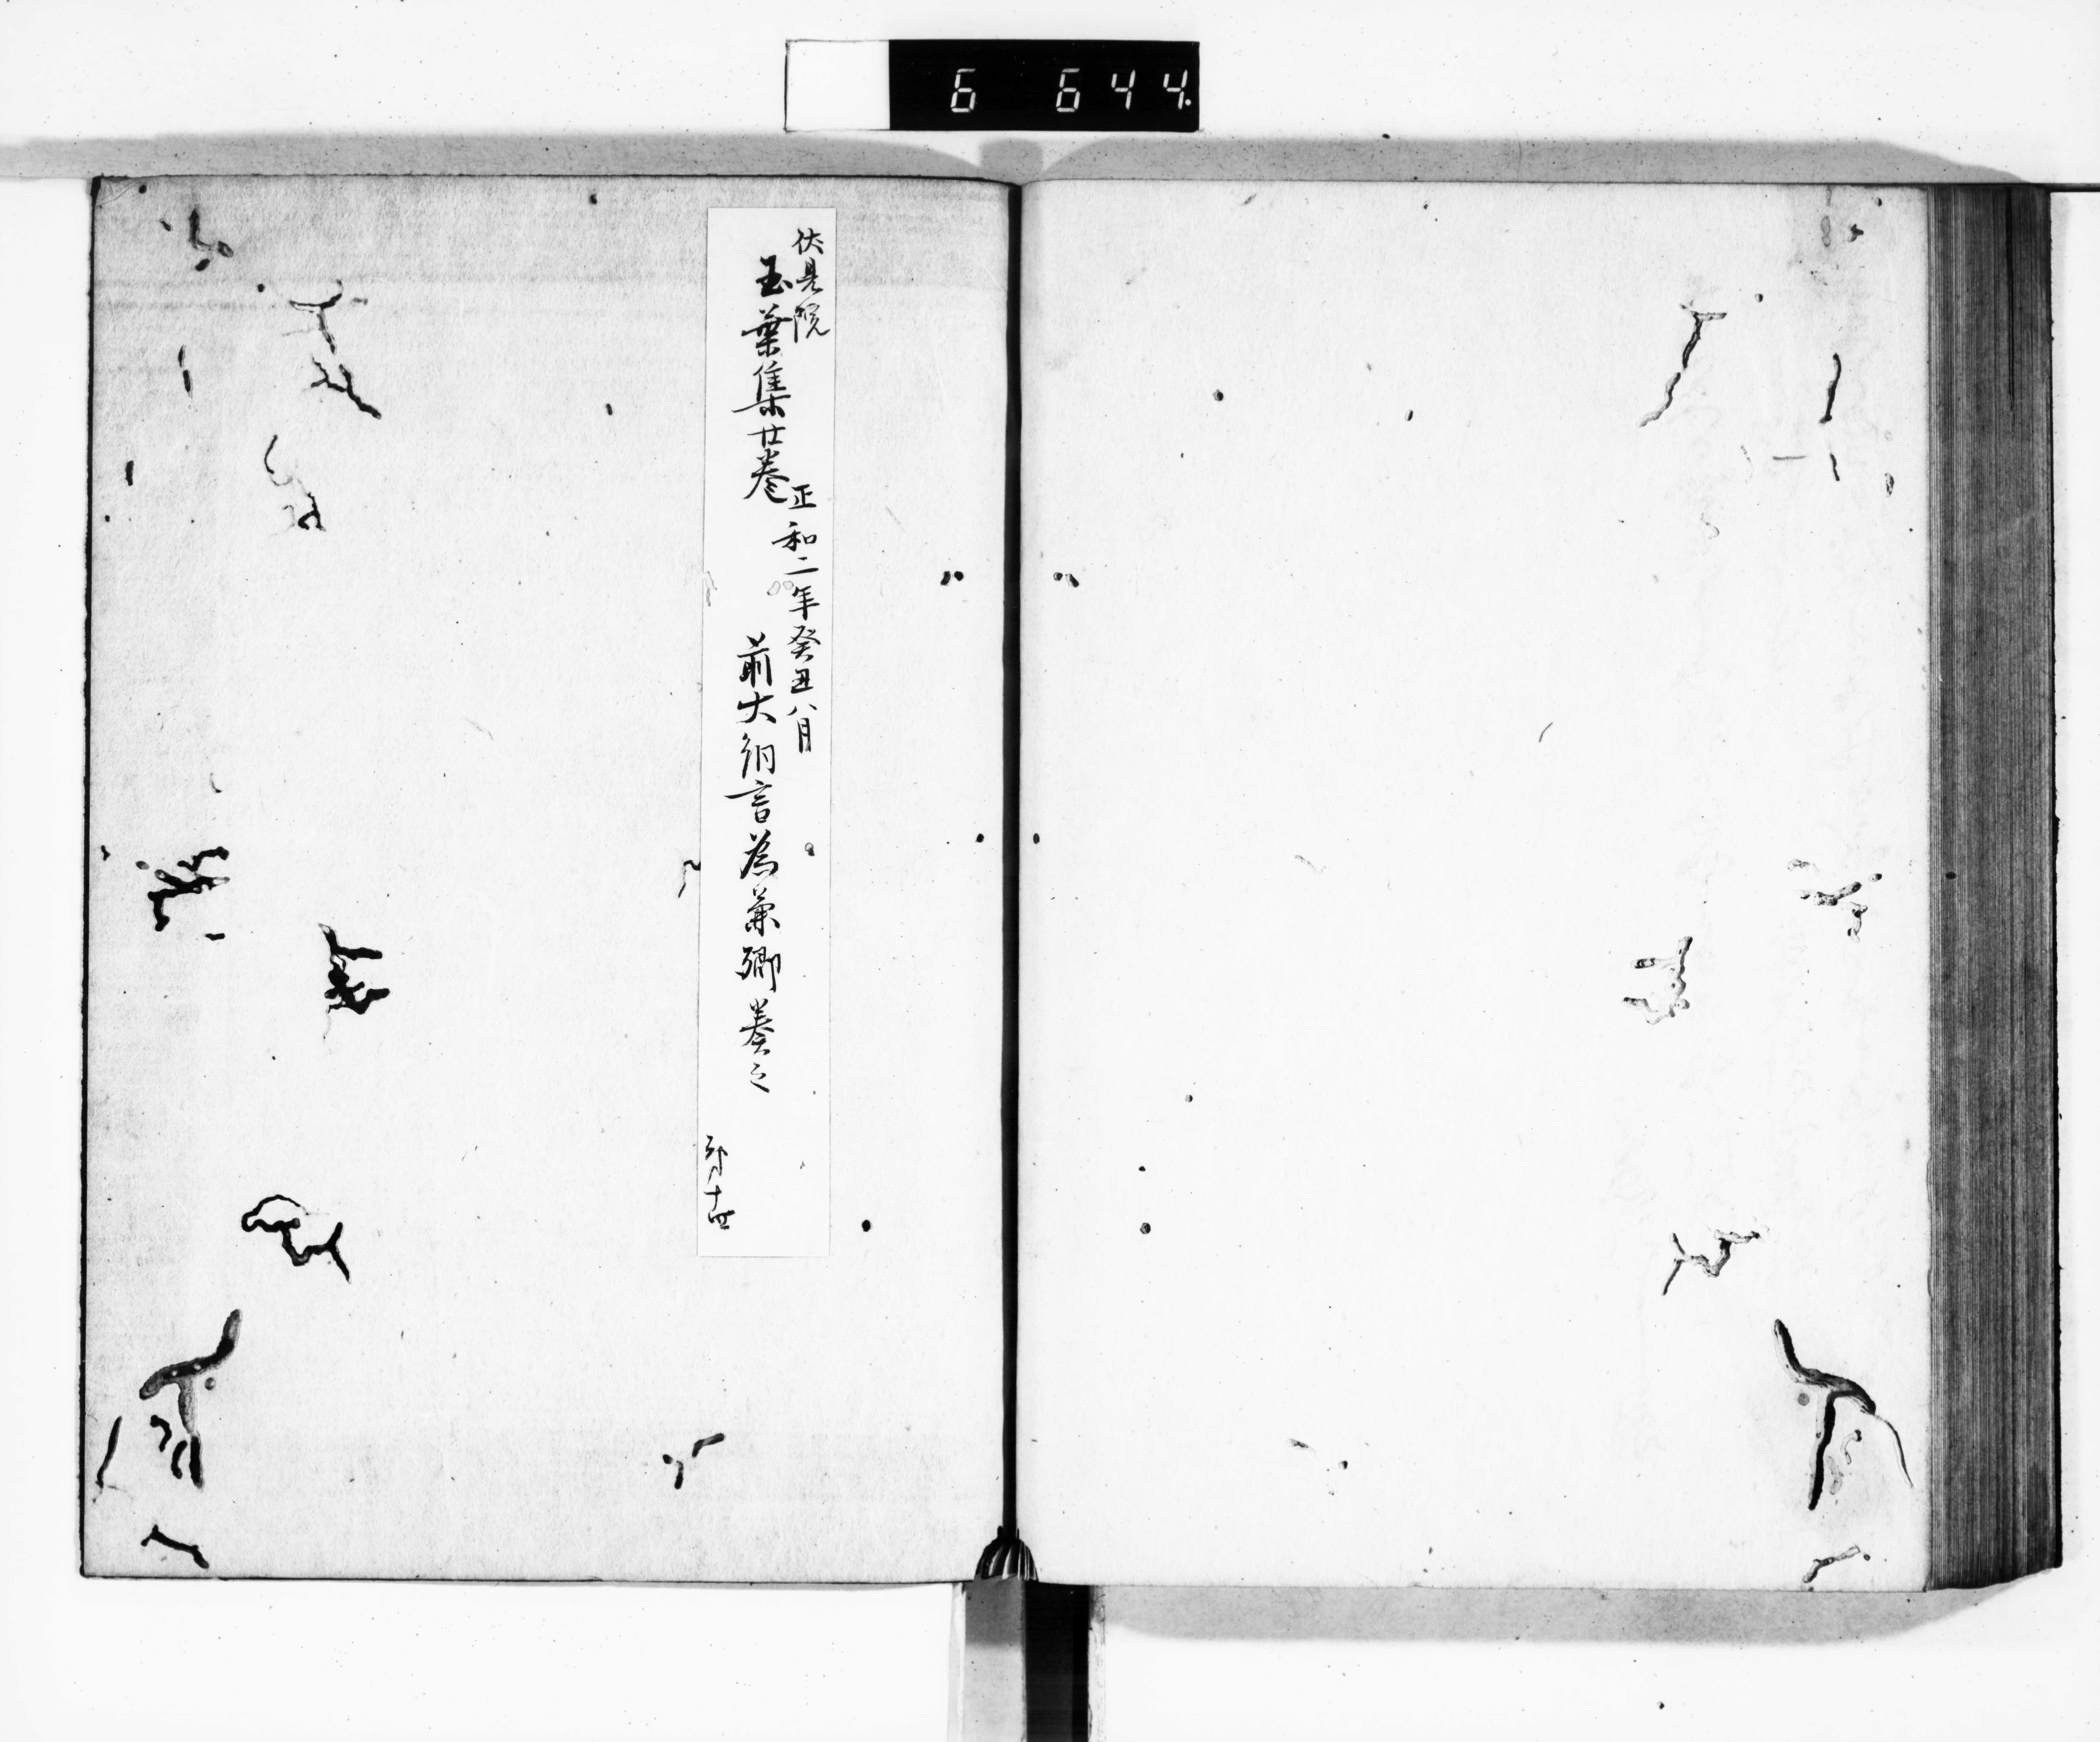 6 644.
伏見院
玉葉集廿巻
正和二年癸丑八月
前大納言為兼卿奏之
十四